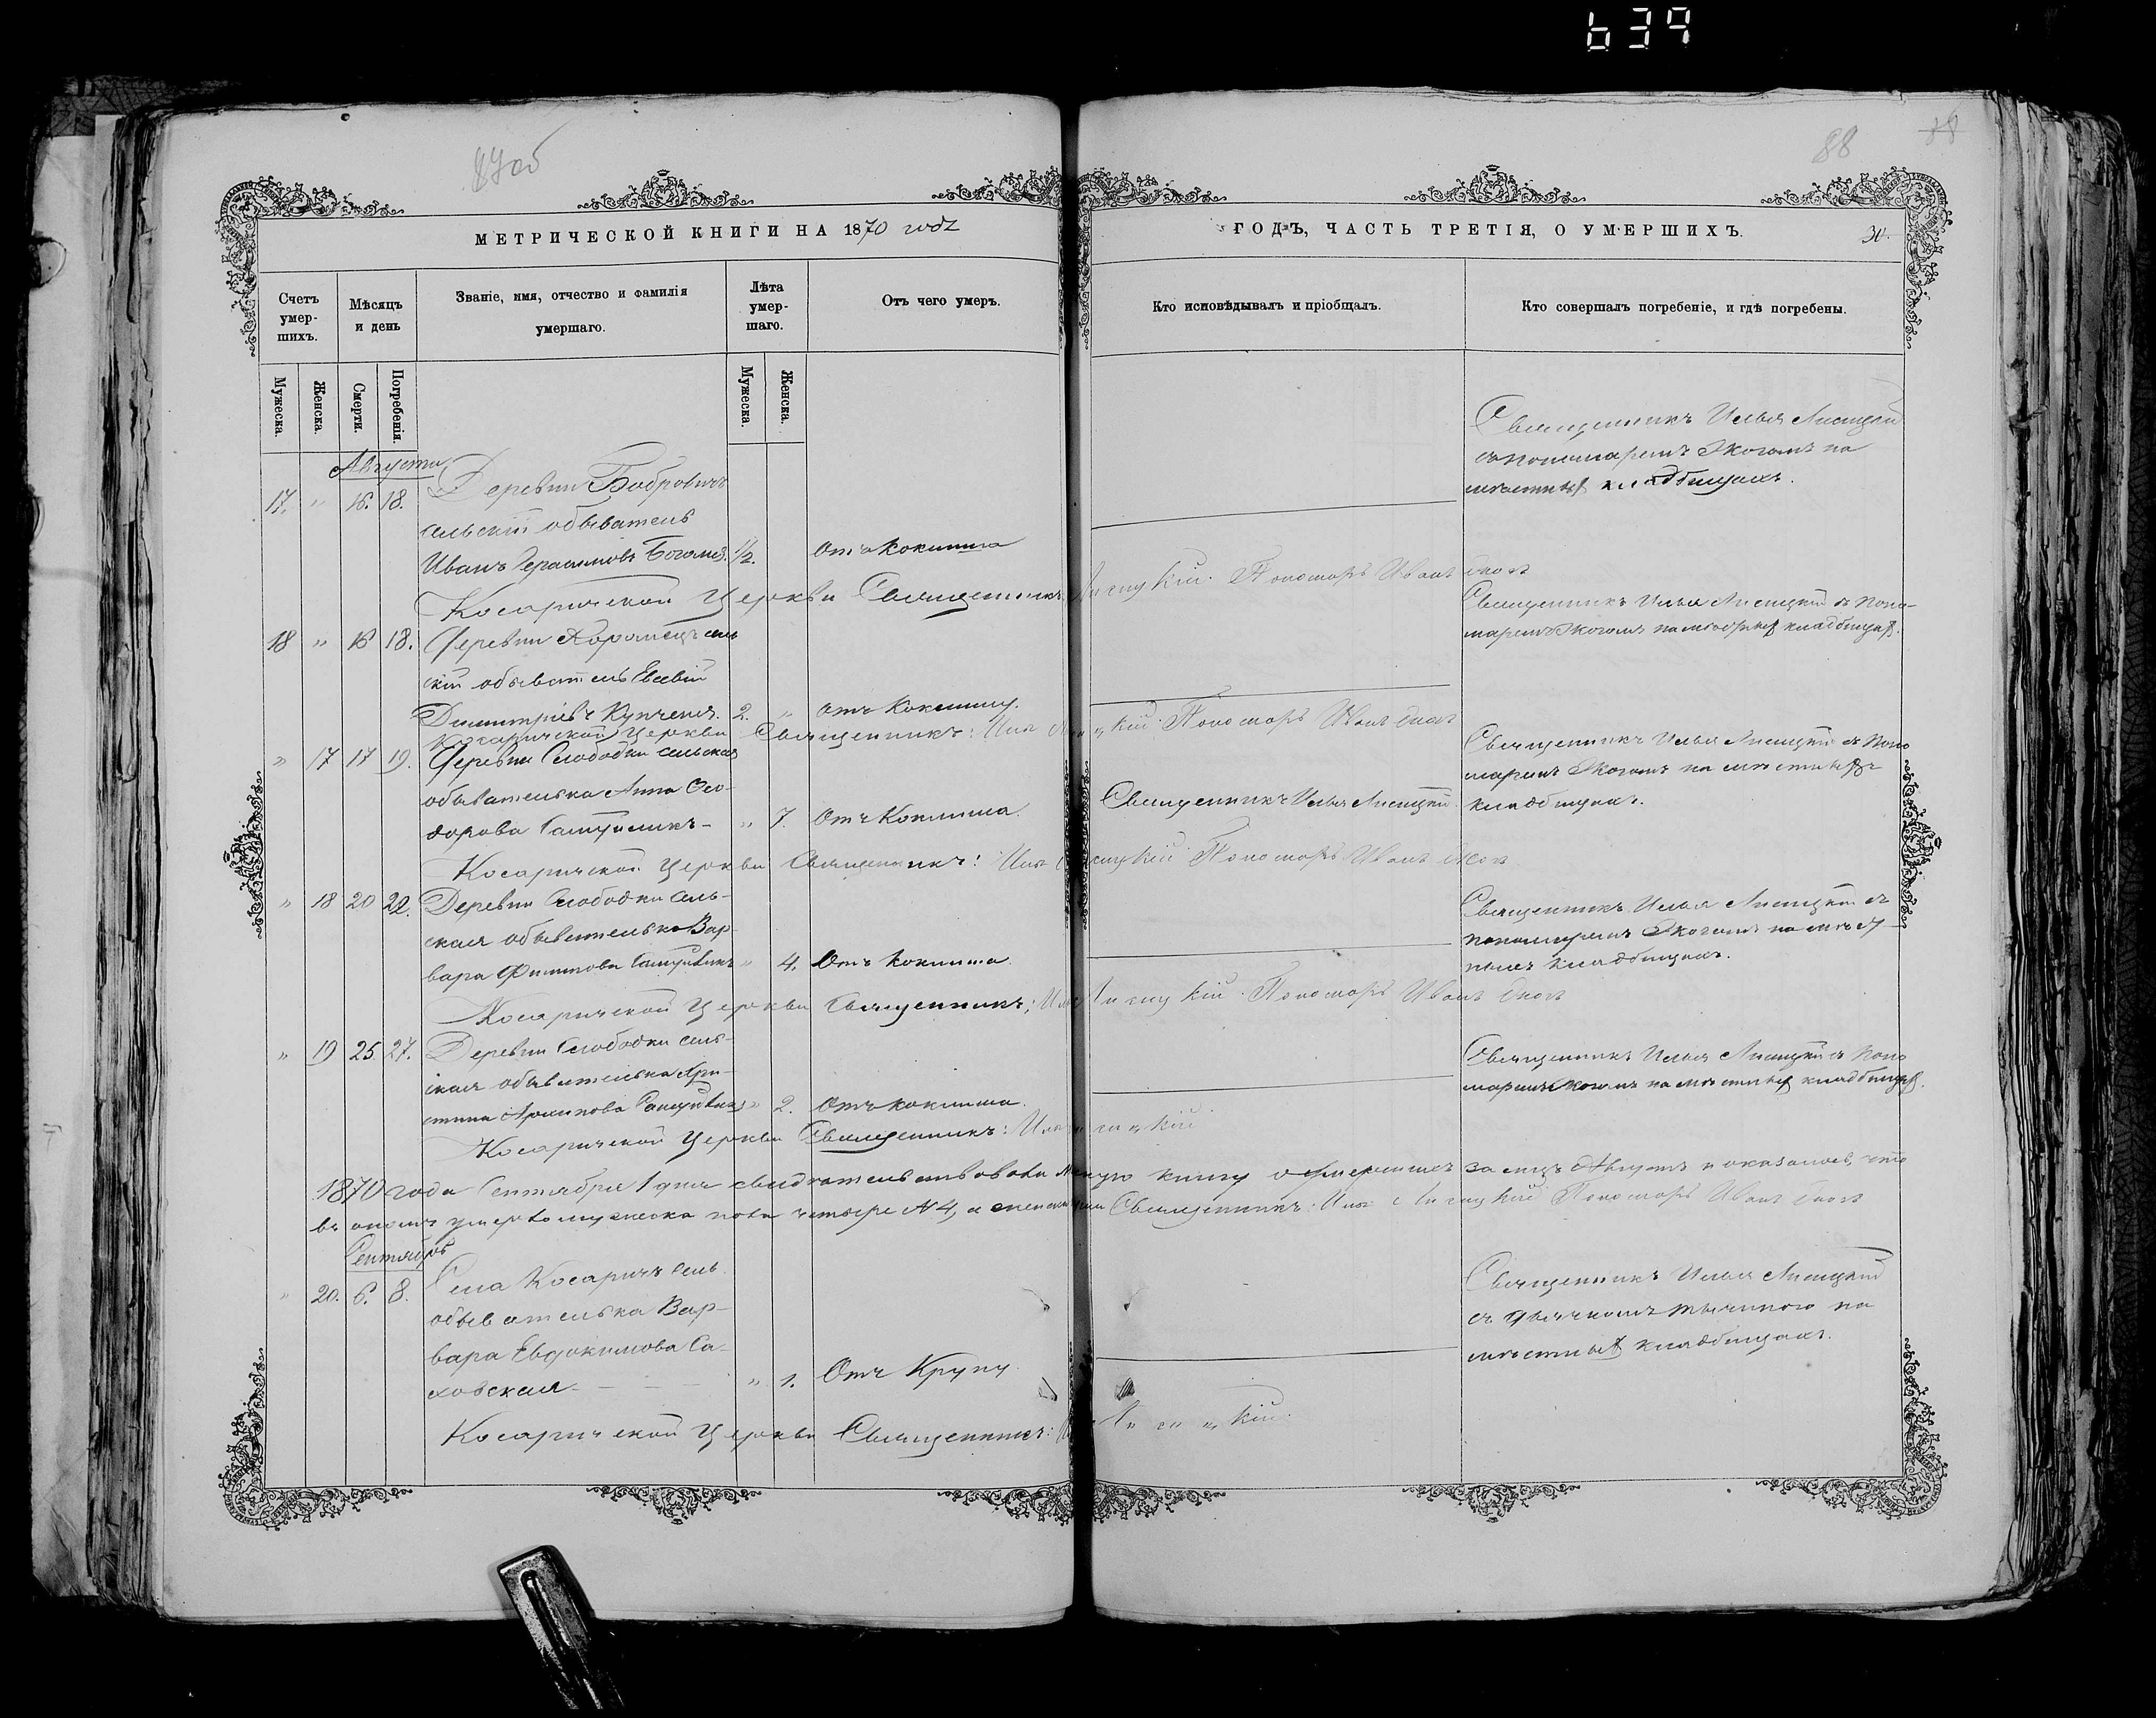 639
87об
88
МЕТРИЧЕСКОЙ КНИГИ НА 1870 годъ
ГОДЪ, ЧАСТЬ ТРЕТІЯ, О УМЕРШИХЪ.
30.
Счетъ умер-шихъ.
Мѣсяцъ и день
Званіе, имя, отчество и фамилія умершаго.
Лѣта умер-шаго.
Отъ чего умеръ.
Кто исповѣдывалъ и пріобщалъ.
Кто совершалъ погребеніе, и гдѣ погребены.
Мужеска.
Женска.
Смерти.
Погребенія.
Мужеска.
Женска.
Августа
17. " 16. 18. Деревни Бобровичъ
сельскій обыватель
Иванъ Герасимовъ 1/2. Отъ Коклюша
Священникъ Илья Лисицкій
съ пономаремъ на
мѣстныхъ кладбищахъ.
Косаричской Церкви Священникъ Лисицкій. Пономарь Иванъ
18 " 16 18. Деревни Хоромецъ сель
скій обыватель Евсевій
Димитріевъ Купченя. 2. " Отъ Коклюшу.
Священникъ Илья Лисицкій съ поно-
маремъ на мѣстныхъ кладбищахъ.
Косаричской Церкви Священникъ: Илья Лисицкій. Пономарь Иванъ
" 17 17 19. Деревни Слободки сельская
обывателька Анна Фео-
дорова " 7. Отъ Коклюша.
Священникъ Илья Лисицкій
Священникъ Илья Лисицкій съ поно
маремъ на мѣстныхъ
кладбищахъ.
Косаричской Церкви Священникъ: Илья Лисицкій Пономарь Иванъ
" 18 20 22. Деревни Слободки сель-
ская обывателька Вар-
вара " 4. Отъ Коклюша
Священникъ Илья Лисицкій съ
пономаремъ на мѣст-
ныхъ кладбищахъ.
Косаричской Церкви Священникъ: Илья Лисицкій. Пономарь Иванъ
" 19 25 27. Деревни Слободки сель-
ская обывателька Хри-
стина " 2. Отъ коклюша.
Священникъ Илья Лисицкій съ поно
маремъ на мѣстныхъ кладбищахъ.
Косаричской Церкви Священникъ: Илья Лисицкій
1870 года Сентября 1 дня свидѣтельствовали книгу о умершихъ за мцъ Августъ и оказалось, что
въ ономъ умерло мужеска пола четыре №4, а женска Священникъ: Илья Лисицкій Пономарь Иванъ
Сентябрь
" 20. 6. 8. Села Косаричъ сель.
обывателька Вар-
вара Евдокимова Са-
ховская " 1. Отъ Крупу.
Священникъ Илья Лисицкій
съ дьячкомъ на
мѣстныхъ кладбищахъ.
Косаричской Церкви Священникъ: Лисицкій.